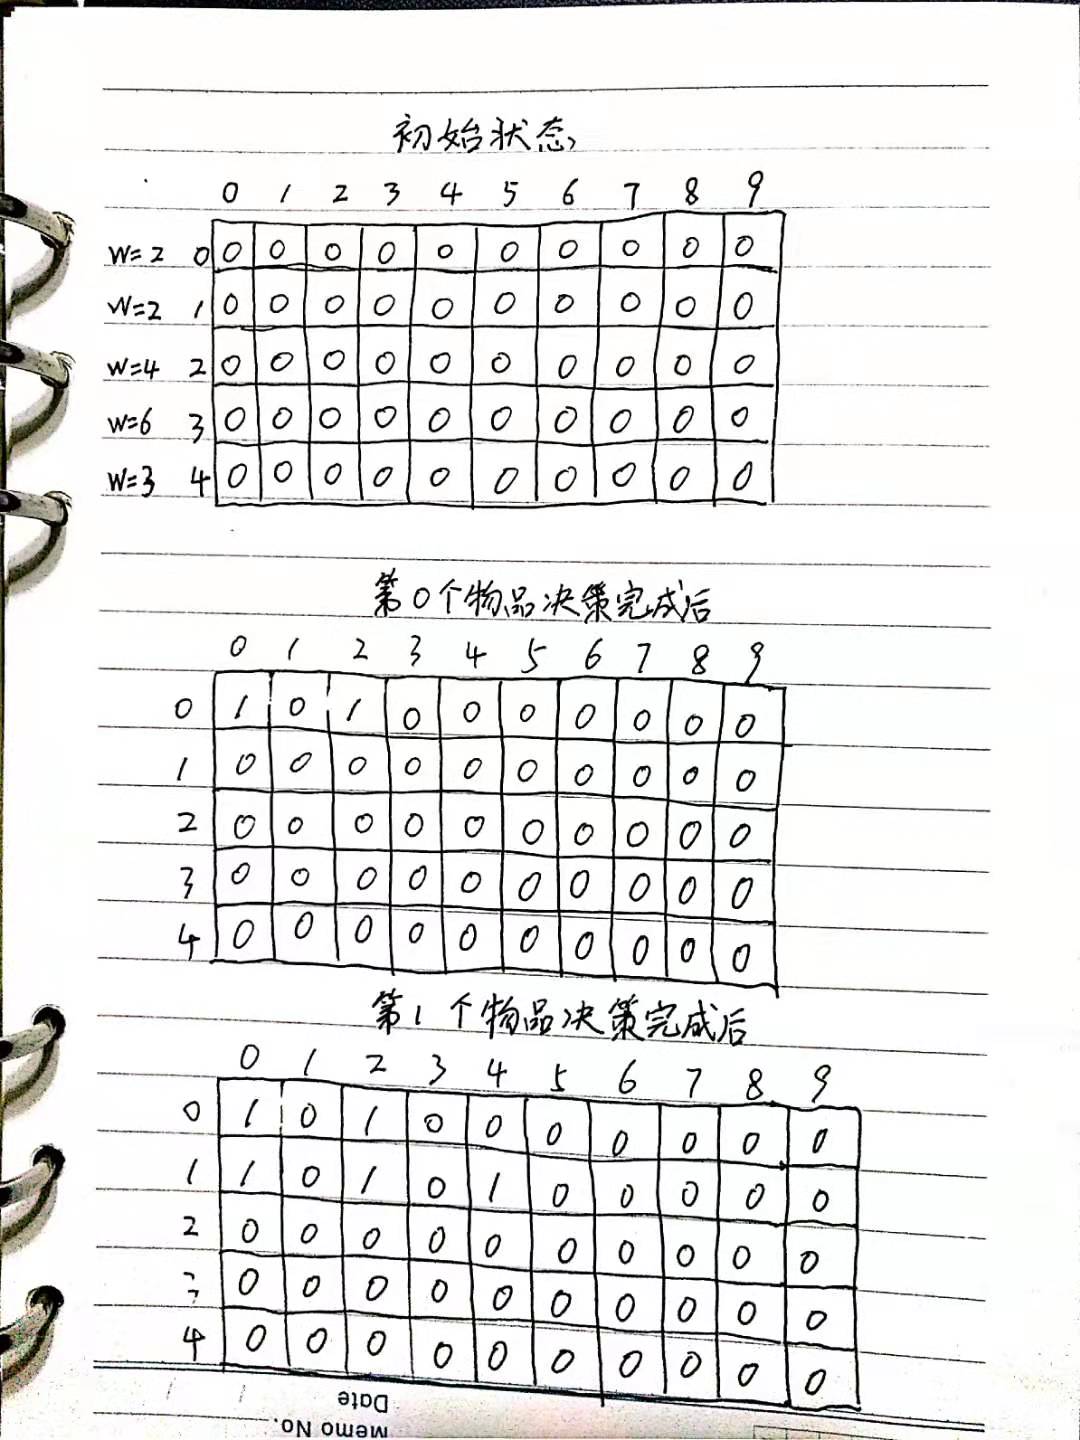 初始状态
0 1 2 3 4 5 6 7 8 9
W=2 0 0 0 0 0 0 0 0 0 0 0
W=2 1 0 0 0 0 0 0 0 0 0 0
W=4 2 0 0 0 0 0 0 0 0 0 0
W=6 3 0 0 0 0 0 0 0 0 0 0
W=3 4 0 0 0 0 0 0 0 0 0 0
第0个物品决策完成后
0 1 2 3 4 5 6 7 8 9
0 1 0 1 0 0 0 0 0 0 0
1 0 0 0 0 0 0 0 0 0 0
2 0 0 0 0 0 0 0 0 0 0
3 0 0 0 0 0 0 0 0 0 0
4 0 0 0 0 0 0 0 0 0 0
第1个物品决策完成后
0 1 2 3 4 5 6 7 8 9
0 1 0 1 0 0 0 0 0 0 0
1 1 0 1 0 1 0 0 0 0 0
2 0 0 0 0 0 0 0 0 0 0
3 0 0 0 0 0 0 0 0 0 0
4 0 0 0 0 0 0 0 0 0 0
Date
Memo No.